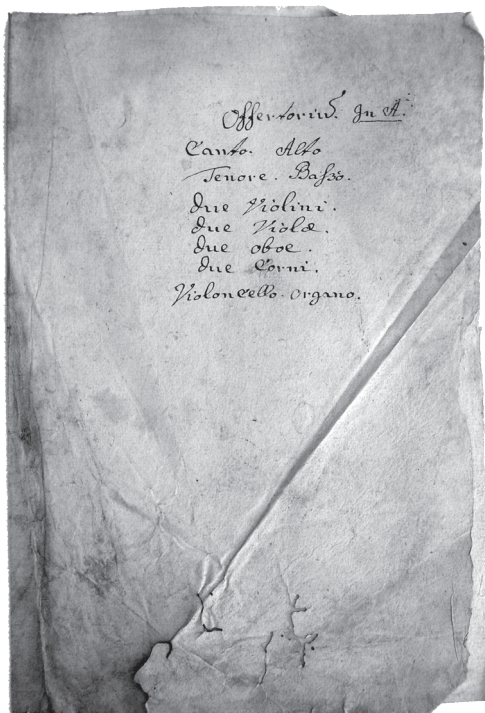 Offertoriũ. In A.
Canto. Alto
Tenore. Baſso.
due Violini.
due Violæ.
due oboe.
due Corni.
Violoncello. organo.